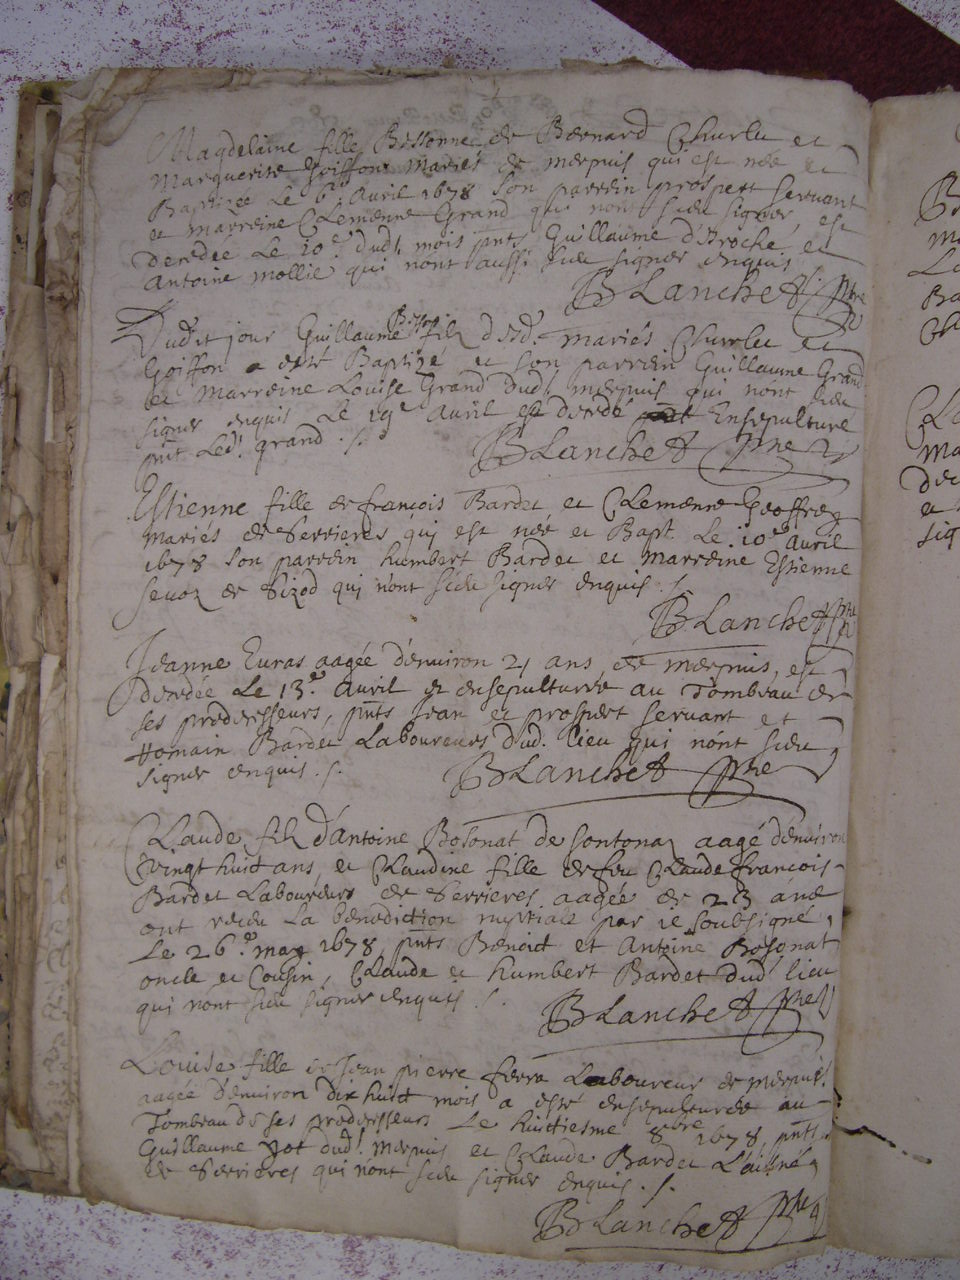 Magdelaine fille Bessonne de Bernard Churlet et
Marguerite Goiffon Mariés de merpuis qui est née et
Baptizée Le 6e Avril 1678 Son parrein prospert servant
et marreine Clemence Grand qui nont sceu signer, est
decedée Le 10e dudt mois pnts Guillaume d'Broche et
Antoine mollie qui nont aussi sceu signer enquis
BLanchet ptre
Dudit jour Guillaume Besson fils desd. mariés Churlet et
Goiffon a esté Baptizé et son parrein Guillaume Grand
et Marreine Louise Grand dudt merpuis qui n'ont sceu
signer enquis Le 19e Avril est decedé Ensepulturé
pnt Led. grand ./.
BLanchet ptre
Estienne fille de françois Bardet et Clemence Geoffrey
mariés de Serrieres qui est née et Bapt. Le 10e Avril
1678 Son parrein humbert Bardet et Marreine Estienne
sevoz de Sizod qui n'ont sceu signer enquis ./.
BLanchet ptre
Jeanne Euras aagée d'environ 21 ans de merpuis, est
decedée Le 13e Avril et ensepulturée au Tombeau de
ses predecesseurs, pnts Jean et prospert servant et
Romain Bardet Laboureurs dud. lieu qui n'ont sceu
signer enquis ./.
BLanchet ptre
CLaude fils d'antoine Bosonat de sontonaz aagé d'environ
vingt huict ans, et CLaudine fille de feu CLaude françois
Bardet Laboureur de Serrieres aagée de 23 ans
ont receu La benediction nuptialle par ie soubsigné,
Le 26e may 1678, pnts Benoict et Antoine Bosonat
oncle et Cousin, CLaude et humbert Bardet dud lieu
qui nont sceu signer enquis ./.
BLanchet ptre
Louise fille de Jean pierre ferra Laboureur de merpuis
aagée d'environ dix huict mois a esté ensepulturée au
Tombeau de ses predecesseurs Le huictiesme 8bre 1678, pnts
Guillaume Jot dud. Merpuis et CLaude Bardet L'aisné
de Serrieres qui nont sceu signer enquis ./.
BLanchet ptre